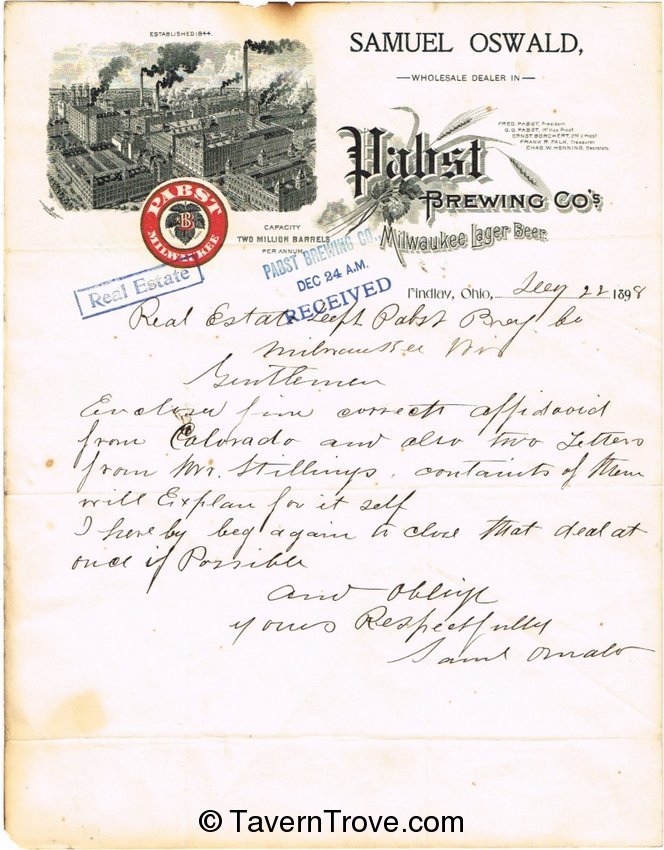 ESTABLISHED 1844.
SAMUEL OSWALD,
WHOLESALE DEALER IN
FRED. PABST, President.
G. G. PABST, 1st Vice Prest.
ERNST BORCHERT, 2nd V. Prest.
FRANK R. FALK, Treasurer.
CHAS. W. HENNING, Secretary.
Pabst
BREWING CO'S
Milwaukee Lager Beer.
PABST
B
MILWAUKEE
CAPACITY
TWO MILLION BARRELS
PER ANNUM.
PABST BREWING CO.
DEC 24 A.M.
RECEIVED
Real Estate
Findlay, Ohio, Dec 22 1898
Real Estate Dept Pabst Brey Co
Milwaukee Wis
Gentlemen
Enclose fine corects affidavid
from Colorado and also two Letters
from Mr. Stillings. containts of them
will Explan for it self
I hereby beg again to close that deal at
once if Possible
and Oblige
yours Respectfully
Saml Oswald
© TavernTrove.com